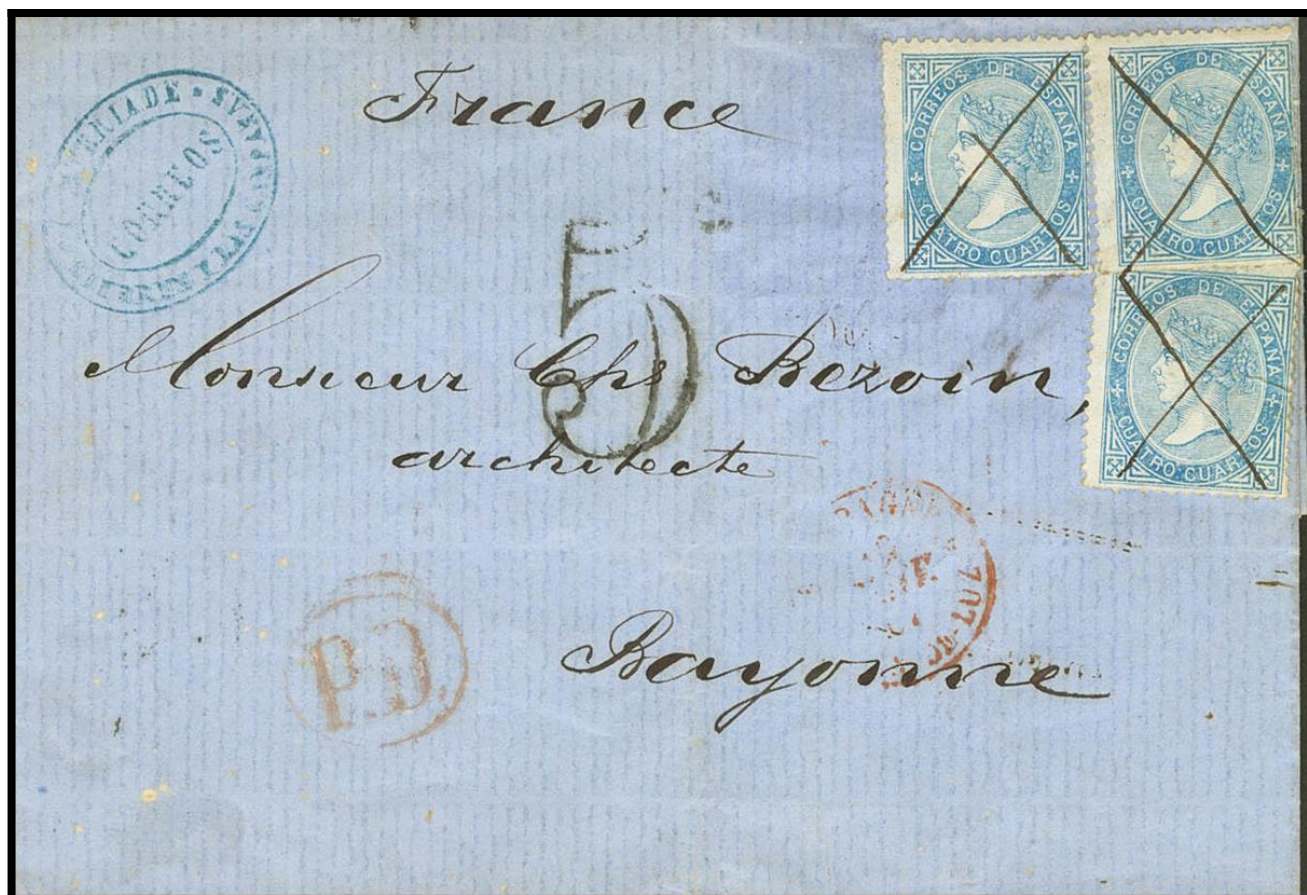 France
CORREOS
CORREOS DE ESPAÑA
CUATRO CUARTOS
CORREOS DE ESPAÑA
CUATRO CUARTOS
CORREOS DE ESPAÑA
CUATRO CUARTOS
5
Monsieur Chs Rezoin,
architecte
P.D.
Bayonne